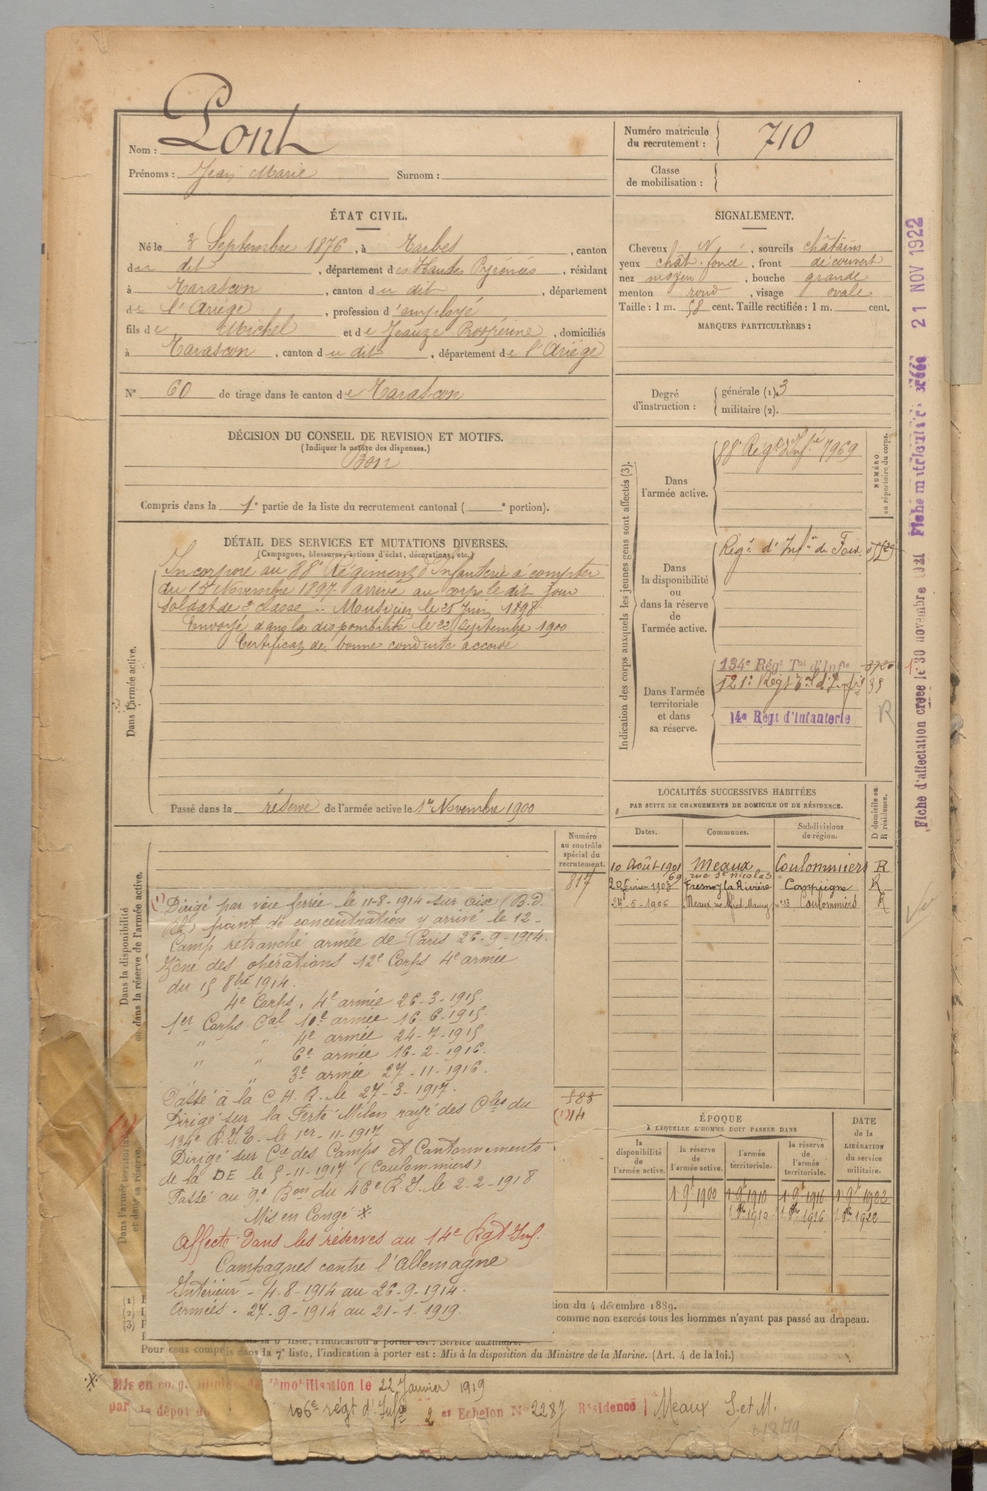 Nom : Pont
Prénoms : Jean Marie Surnom :
Numéro matricule du recrutement : 710
Classe de mobilisation :
ÉTAT CIVIL.
Né le 3 Septembre 1876, à Tarbes, canton
du dit, département des Hautes Pyrénées, résidant
à Tarascon, canton du dit, département
de l'Ariège, profession d'employé
fils de Michel et de Jeauze Prospérine, domiciliés
à Tarascon, canton du dit, département de l'Ariège
N° 60 de tirage dans le canton de Tarascon
SIGNALEMENT.
Cheveux N, sourcils châtains
yeux chat. foncé, front découvert
nez moyen, bouche grande
menton rond, visage ovale
Taille : 1 m. 58 cent. Taille rectifiée : 1 m. cent.
MARQUES PARTICULIÈRES :
Degré d'instruction : générale (1). 3
militaire (2).
DÉCISION DU CONSEIL DE REVISION ET MOTIFS.
(Indiquer la nature des dispenses.)
Bon
Compris dans la 1e partie de la liste du recrutement cantonal ( e portion).
DÉTAIL DES SERVICES ET MUTATIONS DIVERSES.
(Campagnes, blessures, actions d'éclat, décorations, etc.)
Dans l'armée active.
Incorporé au 88e Régiment d'Infanterie à compter
du 15 Novembre 1897 arrivé au corps le dit jour
soldat de 2e classe
le 25 Juin 1898
Envoyé dans la disponibilité le 22 Septembre 1900
Certificat de bonne conduite accordé
Passé dans la réserve de l'armée active le 1er Novembre 1900
Indication des corps auxquels les jeunes gens sont affectés (3).
NUMÉRO au répertoire du corps.
Dans l'armée active.
88e Régt d'Infie 7969
Dans la disponibilité ou dans la réserve de l'armée active.
Régt d'Infie de Foix
Dans l'armée territoriale et dans sa réserve.
134e Régt Tal d'Infie
121e Régt Tal d'Infie
14e Régt d'Infanterie
R
LOCALITÉS SUCCESSIVES HABITÉES
PAR SUITE DE CHANGEMENTS DE DOMICILE OU DE RÉSIDENCE.
Dates. Communes. Subdivisions de région. D domicile ou R résidence.
10 Août 1901 Meaux Coulommiers R
69 rue St Nicolas
20 février 1903 Fresnoy la Rivière Compiègne R
24-5-1906 Meaux Coulommiers R
Numéro au contrôle spécial du recrutement.
817
Dans la disponibilité ou dans la réserve de l'armée active.
(1) Dirigé par voie ferrée le 11-8-1914 sur
point de concentration y arrivé le 12-
Camp retranché armée de Paris 26-9-1914.
Zône des opérations 12e Corps 4e armée
du 15 8bre 1914.
4e Corps, 4e armée 26-3-1915
1er Corps Cal 10e armée 16-6-1915
" " 4e armée 24-7-1915
" " 6e armée 16-2-1916.
" " 3e armée 27-11-1916.
Passé à la C.H.R. le 27-3-1917.
Dirigé sur la Ferté Milon rayé des Cles du
134e R.I.T. le 1er-11-1917
Dirigé sur Cie des Camps et Cantonnements
de la DE le 5-11-1917 (Coulommiers)
Passé au 9e Bon du 46e R.I. le 2-2-1918
Mis en Congé *
Affecté dans les réserves au 14e Rgt Inf.
Campagnes contre l'Allemagne
Intérieur - 4-8-1914 au 26-9-1914.
Armées - 27-9-1914 au 21-1-1919.
588
(1) 14
ÉPOQUE
À LAQUELLE L'HOMME DOIT PASSER DANS
DATE de la LIBÉRATION du service militaire.
la disponibilité de l'armée active. la réserve de l'armée active. l'armée territoriale. la réserve de l'armée territoriale.
1 9bre 1900 1 9bre 1910 1 9bre 1916 1 9bre 1922
1 8bre 1912 1 8bre 1926 1 8bre 1922
tion du 4 décembre 1889.
comme non exercés tous les hommes n'ayant pas passé au drapeau.
Pour ceux compris dans la 7e liste, l'indication à porter est : Mis à la disposition du Ministre de la Marine. (Art. 4 de la loi.)
* Mis en congé démobilisation le 22 Janvier 1919
par le dépôt du 106e régt d'Infie 2 et Echelon N° 2287 Résidence Meaux S. et M.
Fiche d'affectation créée le 30 novembre
21 NOV 1922